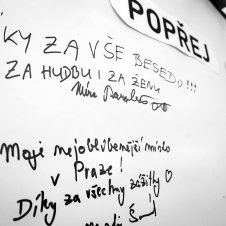 POPŘEJ
KY ZA VŠE BESEDO!!!
ZA HUDBU I ZA ŽENU
Moje nejoblíbenější místo
v Praze!
Díky za všechny zážitky